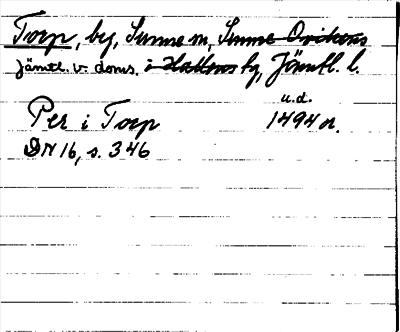 Torp, by, Sunne sn, Sunne Ovikens
Jämtl. v. doms. i Hallens by, Jämtl. l.
u.d.
Per i Torp 1494 n.
DN 16, s. 346